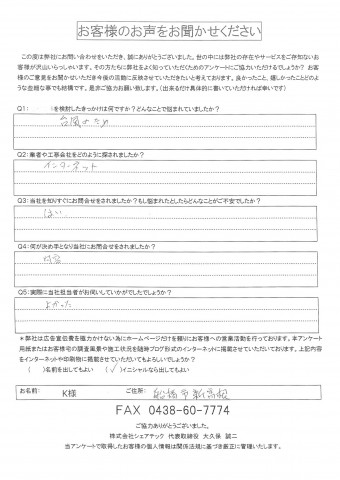 お客様のお声をお聞かせください
この度は弊社にお問い合わせをいただき、誠にありがとうございました。世の中には弊社の存在やサービスをご存知ないお
客様が沢山いらっしゃいます。その方たちに弊社をよく知っていただくためのアンケートにご協力いただけるでしょうか？ お客
様のご意見をお聞かせいただき今後の活動に反映させていただきたいと考えております。良かったこと、嬉しかったことどのよ
うな些細な事でも結構です。是非ご協力お願い致します。（出来るだけ具体的に書いていただければ幸いです）
Q1： を検討したきっかけは何ですか？どんなことで悩まれていましたか？
台風のため
Q2：業者や工事会社をどのように探されましたか？
インターネット
Q3：当社を知りすぐにお問合せをされましたか？もし悩まれたとしたらどんなことがご不安でしたか？
はい
Q4：何が決め手となり当社にお問合せをされましたか？
内容
Q5：実際に当社担当者がお伺いしていかがでしたでしょうか？
よかった
＊弊社は広告宣伝費を極力かけない為にホームページだけを頼りにお客様への営業活動を行っております。本アンケート
用紙またはお客様宅の調査風景や施工状況を随時ブログ形式のインターネットに掲載させていただいております。上記内容
をインターネットや印刷物に掲載させていただいてもよろしいでしょうか？
（ ）名前を出してもよい （✓）イニシャルなら出してもよい
お名前： K様 ご住所： 船橋市新高根
FAX 0438-60-7774
ご協力ありがとうございました。
株式会社シェアテック 代表取締役 大久保 誠二
当アンケートで取得したお客様の個人情報は関係法規に基づき厳正に管理いたします。